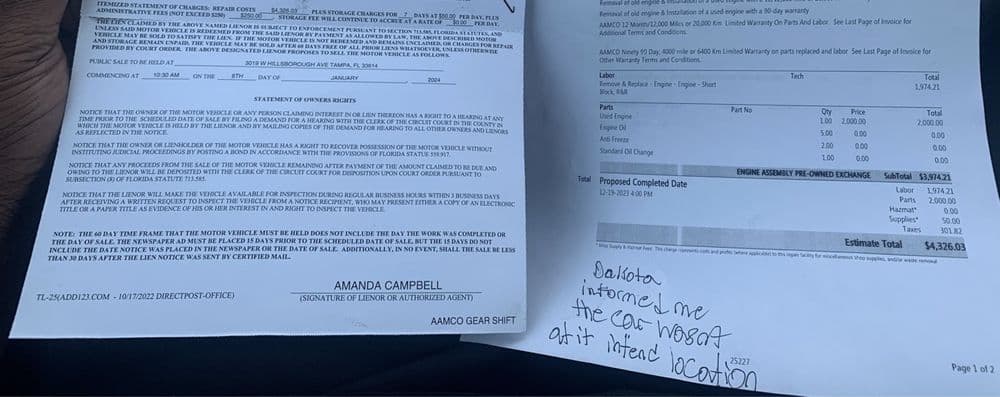 ITEMIZED STATEMENT OF CHARGES: REPAIR COSTS $4,326.03 PLUS STORAGE CHARGES FOR 7 DAYS AT $50.00 PER DAY, PLUS
ADMINISTRATIVE FEES (NOT EXCEED $250) $250.00 STORAGE FEE WILL CONTINUE TO ACCRUE AT A RATE OF $0.00 PER DAY.
THE LIEN CLAIMED BY THE ABOVE NAMED LIENOR IS SUBJECT TO ENFORCEMENT PURSUANT TO SECTION 713.585, FLORIDA STATUTES, AND
UNLESS SAID MOTOR VEHICLE IS REDEEMED FROM THE SAID LIENOR BY PAYMENT AS ALLOWED BY LAW, THE ABOVE DESCRIBED MOTOR
VEHICLE MAY BE SOLD TO SATISFY THE LIEN. IF THE MOTOR VEHICLE IS NOT REDEEMED AND REMAINS UNCLAIMED, OR CHARGES FOR REPAIR
AND STORAGE REMAIN UNPAID, THE VEHICLE MAY BE SOLD AFTER 60 DAYS FREE OF ALL PRIOR LIENS WHATSOEVER, UNLESS OTHERWISE
PROVIDED BY COURT ORDER. THE ABOVE DESIGNATED LIENOR PROPOSES TO SELL THE MOTOR VEHICLE AS FOLLOWS.
PUBLIC SALE TO BE HELD AT 3019 W HILLSBOROUGH AVE TAMPA, FL 33614
COMMENCING AT 10:30 AM ON THE 8TH DAY OF JANUARY 2024
STATEMENT OF OWNERS RIGHTS
NOTICE THAT THE OWNER OF THE MOTOR VEHICLE OR ANY PERSON CLAIMING INTEREST IN OR LIEN THEREON HAS A RIGHT TO A HEARING AT ANY
TIME PRIOR TO THE SCHEDULED DATE OF SALE BY FILING A DEMAND FOR A HEARING WITH THE CLERK OF THE CIRCUIT COURT IN THE COUNTY IN
WHICH THE MOTOR VEHICLE IS HELD BY THE LIENOR AND BY MAILING COPIES OF THE DEMAND FOR HEARING TO ALL OTHER OWNERS AND LIENORS
AS REFLECTED IN THE NOTICE.
NOTICE THAT THE OWNER OR LIENHOLDER OF THE MOTOR VEHICLE HAS A RIGHT TO RECOVER POSSESSION OF THE MOTOR VEHICLE WITHOUT
INSTITUTING JUDICIAL PROCEEDINGS BY POSTING A BOND IN ACCORDANCE WITH THE PROVISIONS OF FLORIDA STATUE 559.917.
NOTICE THAT ANY PROCEEDS FROM THE SALE OF THE MOTOR VEHICLE REMAINING AFTER PAYMENT OF THE AMOUNT CLAIMED TO BE DUE AND
OWING TO THE LIENOR WILL BE DEPOSITED WITH THE CLERK OF THE CIRCUIT COURT FOR DISPOSITION UPON COURT ORDER PURSUANT TO
SUBSECTION (6) OF FLORIDA STATUTE 713.585.
NOTICE THAT THE LIENOR WILL MAKE THE VEHICLE AVAILABLE FOR INSPECTION DURING REGULAR BUSINESS HOURS WITHIN 3 BUSINESS DAYS
AFTER RECEIVING A WRITTEN REQUEST TO INSPECT THE VEHICLE FROM A NOTICE RECIPIENT, WHO MAY PRESENT EITHER A COPY OF AN ELECTRONIC
TITLE OR A PAPER TITLE AS EVIDENCE OF HIS OR HER INTEREST IN AND RIGHT TO INSPECT THE VEHICLE.
NOTE: THE 60 DAY TIME FRAME THAT THE MOTOR VEHICLE MUST BE HELD DOES NOT INCLUDE THE DAY THE WORK WAS COMPLETED OR
THE DAY OF SALE. THE NEWSPAPER AD MUST BE PLACED 15 DAYS PRIOR TO THE SCHEDULED DATE OF SALE, BUT THE 15 DAYS DO NOT
INCLUDE THE DATE NOTICE WAS PLACED IN THE NEWSPAPER OR THE DATE OF SALE. ADDITIONALLY, IN NO EVENT, SHALL THE SALE BE LESS
THAN 30 DAYS AFTER THE LIEN NOTICE WAS SENT BY CERTIFIED MAIL.
AMANDA CAMPBELL
TL-25(ADD123.COM - 10/17/2022 DIRECTPOST-OFFICE) (SIGNATURE OF LIENOR OR AUTHORIZED AGENT)
AAMCO GEAR SHIFT
Removal of old engine & Installation of a used engine with a
Removal of old engine & Installation of a used engine with a 90-day warranty
AAMCO 12 Months/12,000 Miles or 20,000 Km Limited Warranty On Parts And Labor See Last Page of Invoice for
Additional Terms and Conditions.
AAMCO Ninety 90 Day, 4000 mile or 6400 Km Limited Warranty on parts replaced and labor See Last Page of Invoice for
Other Warranty Terms and Conditions.
Labor Tech Total
Remove & Replace - Engine - Engine - Short 1,974.21
Block, R&R
Parts Part No Qty Price Total
Used Engine 1.00 2,000.00 2,000.00
Engine Oil 5.00 0.00 0.00
Anti Freeze 2.00 0.00 0.00
Standard Oil Change 1.00 0.00 0.00
ENGINE ASSEMBLY PRE-OWNED EXCHANGE SubTotal $3,974.21
Total Proposed Completed Date Labor 1,974.21
12-19-2023 4:00 PM Parts 2,000.00
Hazmat* 0.00
Supplies* 50.00
Taxes 301.82
Estimate Total $4,326.03
*Shop Supply & Hazmat Fees: This charge represents costs and profits (where applicable) to this repair facility for miscellaneous shop supplies, and/or waste removal
Dakota
informed me
the car wasnt
at it intend location
25227
Page 1 of 2